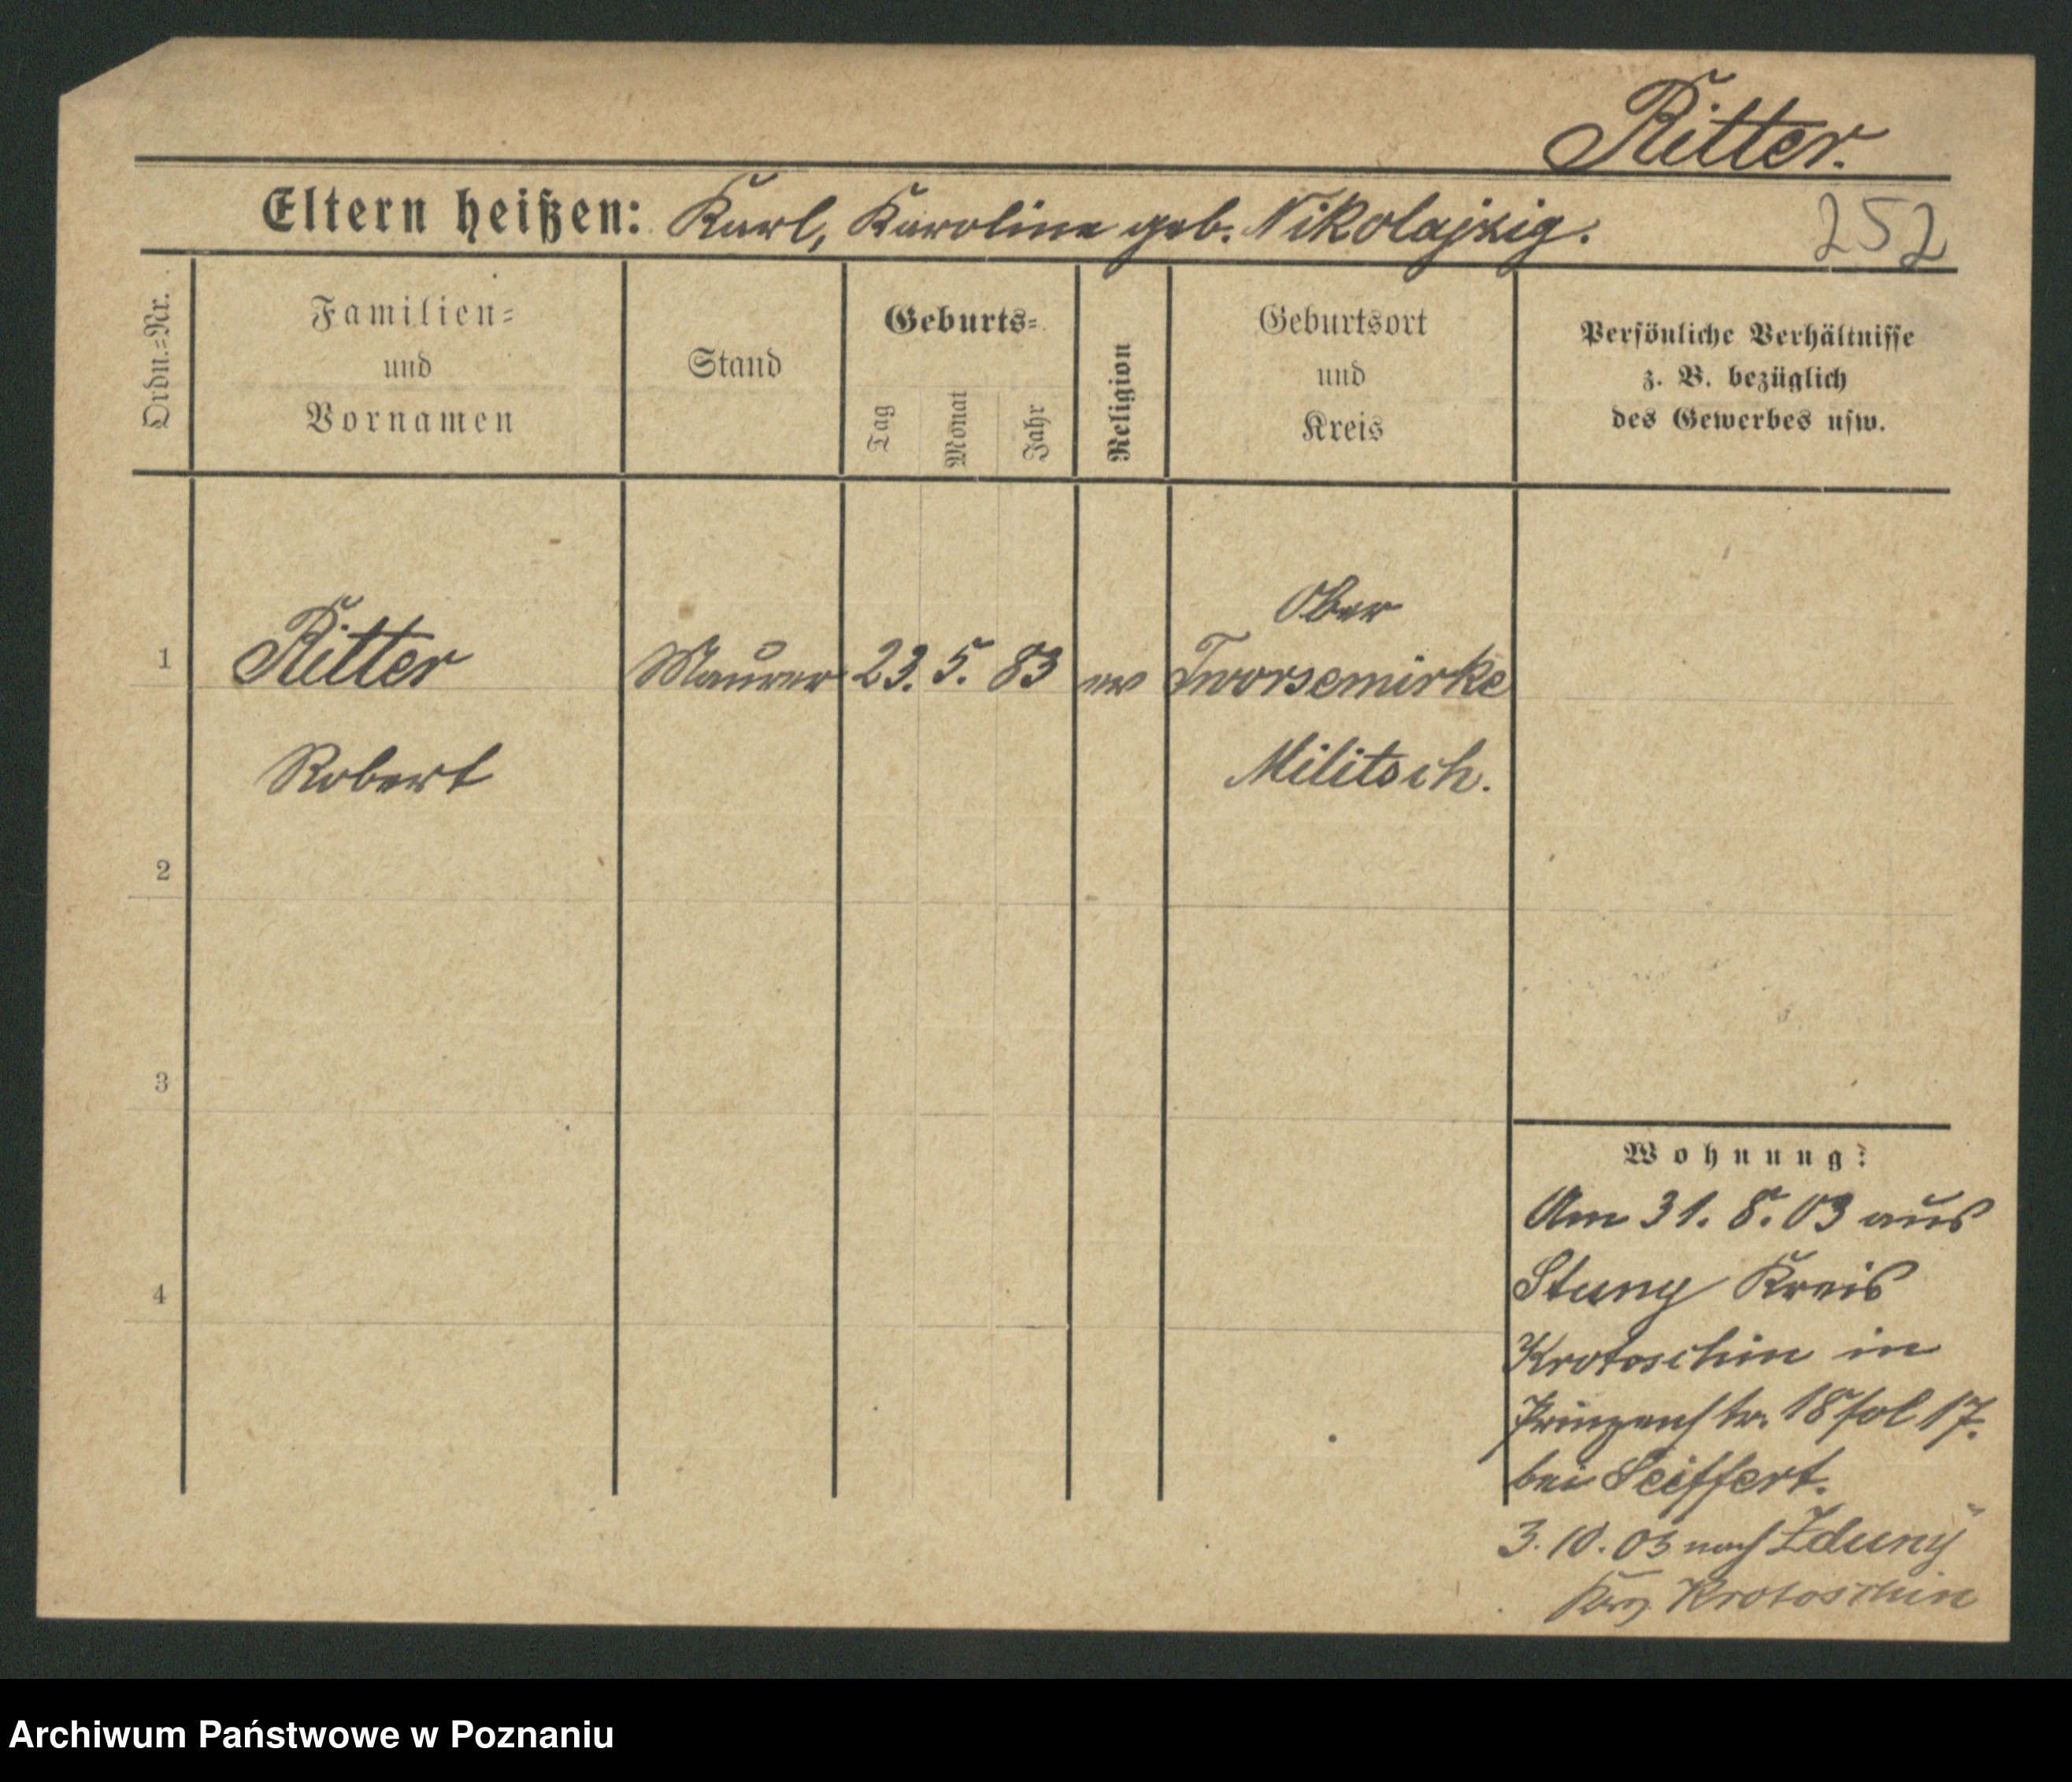 Ritter.
Eltern heißen: Karl, Karoline geb. Nikolajzig.
252
Ordn.=Nr.
Familien=
und
Vornamen
Stand
Geburts=
Tag
Monat
Jahr
Religion
Geburtsort
und
Kreis
Persönliche Verhältnisse
z. B. bezüglich
des Gewerbes usw.
1
Ritter
Robert
Maurer
23. 5. 83
ev
Ober
Tworsemirke
Militsch.
2
3
4
Wohnung:
Am 31. 8. 03 aus
Kreis
Krotoschin in
Prinzenstr. 18 fol 17.
bei Seiffert.
3. 10. 03 nach Zduny
Krotoschin
Archiwum Państwowe w Poznaniu